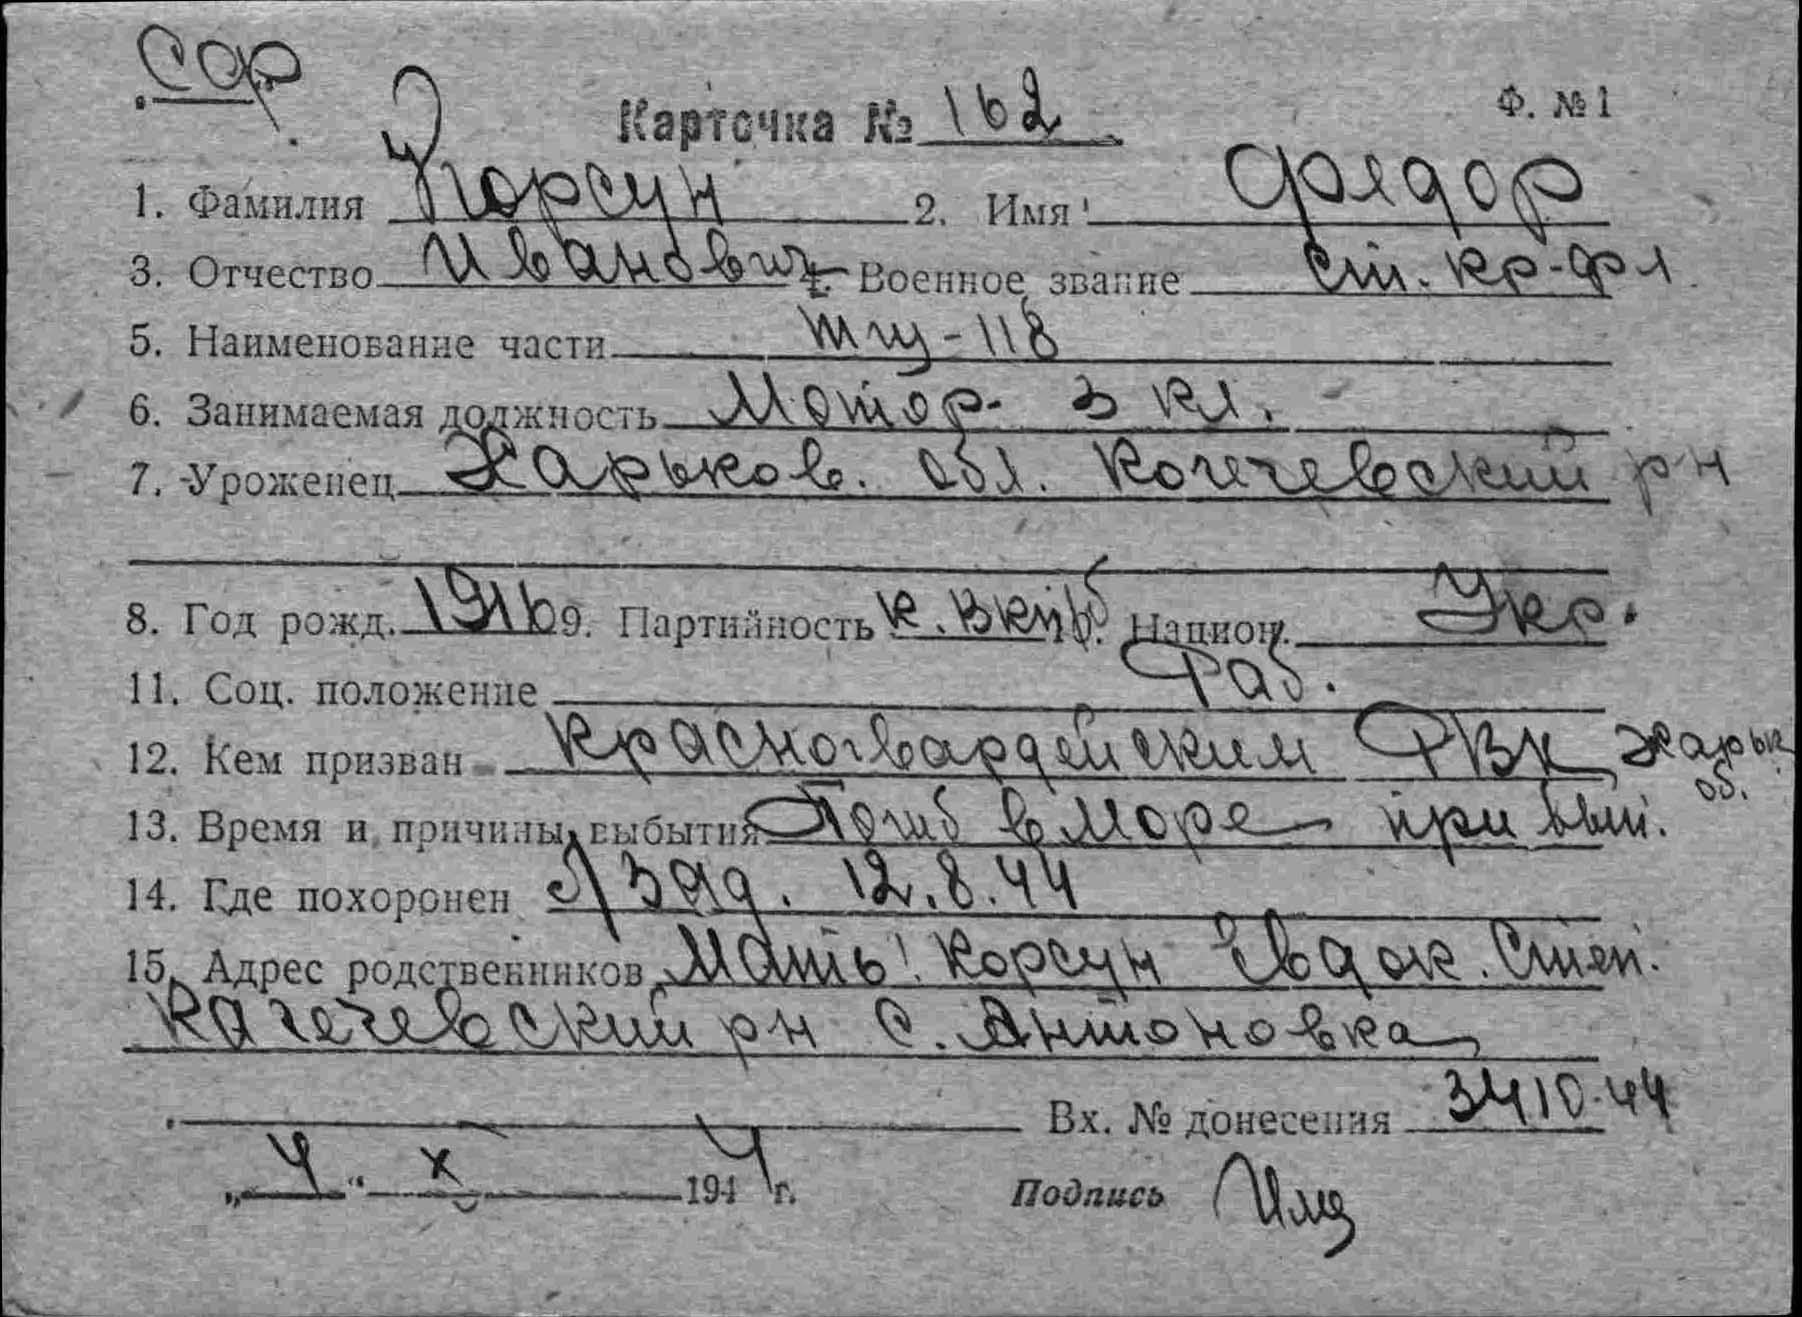 СФ
Карточка № 162
Ф. №1
1. Фамилия Корсун 2. Имя Фядор
3. Отчество Иванович 4. Военное звание ст. кр-фл
5. Наименование части тщ-118
6. Занимаемая должность Мотор. 3 кл.
7. Уроженец Харьков. обл. Когечевский р-н
8. Год рожд. 1916 9. Партийность к. ВКПб Национ. Укр.
11. Соц. положение Раб.
12. Кем призван Красногвардейским РВК Харьк об.
13. Время и причины выбытия Погиб в море при вып.
14. Где похоронен б/зад. 12.8.44
15. Адрес родственников Мать: Корсун Евдок. Степ.
Кагечевский р-н с. Антоновка
Вх. № донесения 3410-44
„4“ X 1944 г. Подпись